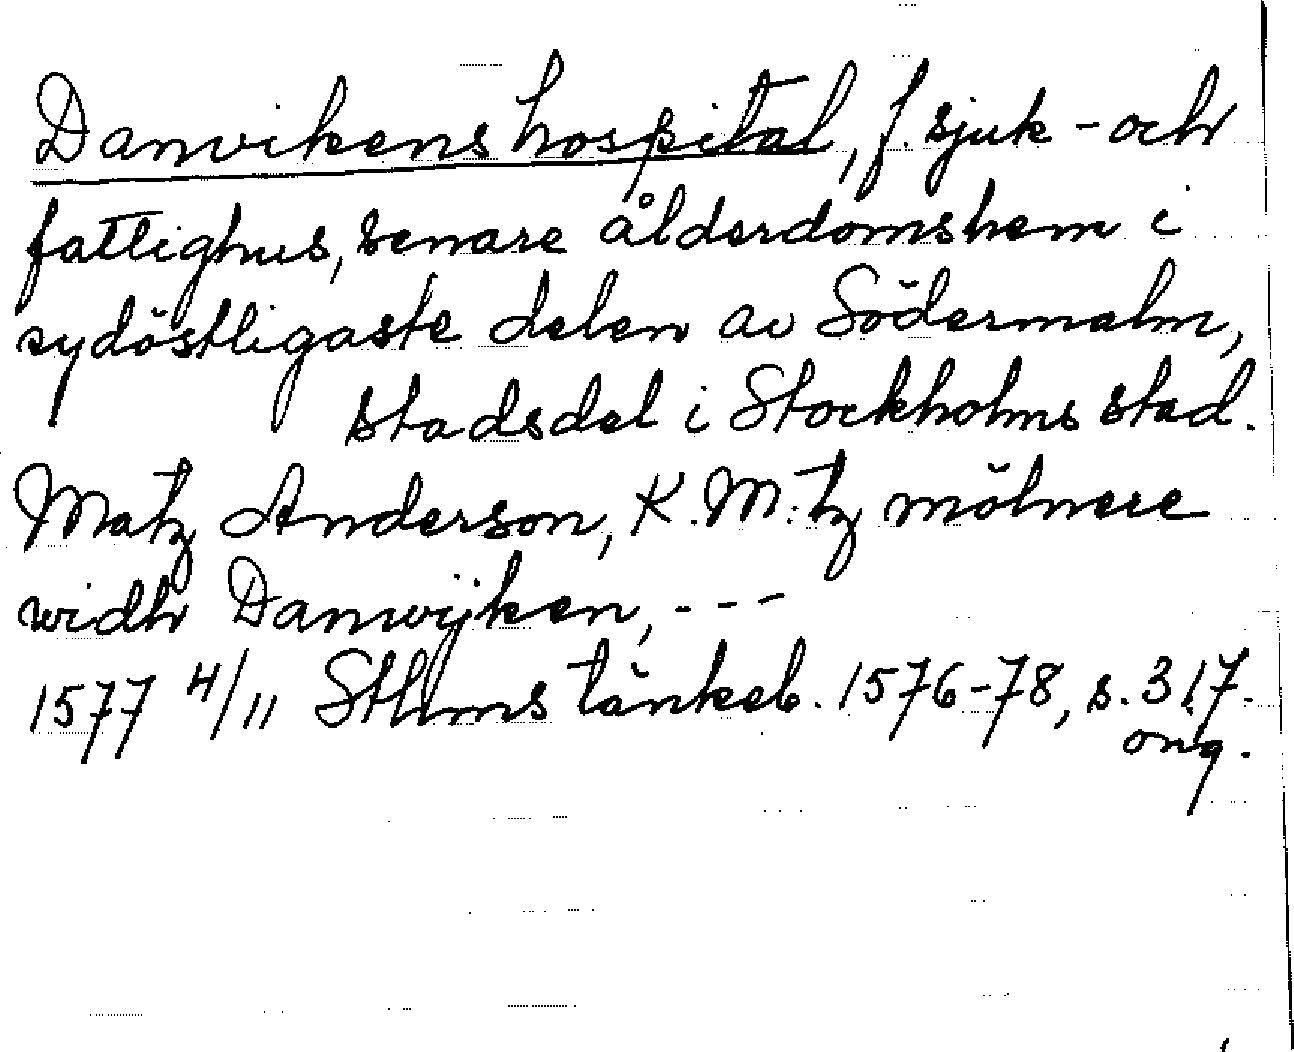 Danvikens hospital, f. sjuk- och
fattighus, senare ålderdomshem i
sydöstligaste delen av Södermalm,
stadsdel i Stockholms stad.
Matz Anderson, K. M:tz mölnere
widh Danwijken, ---
1577 4/11 Sthms tänkeb. 1576-78, s. 317.
omg.